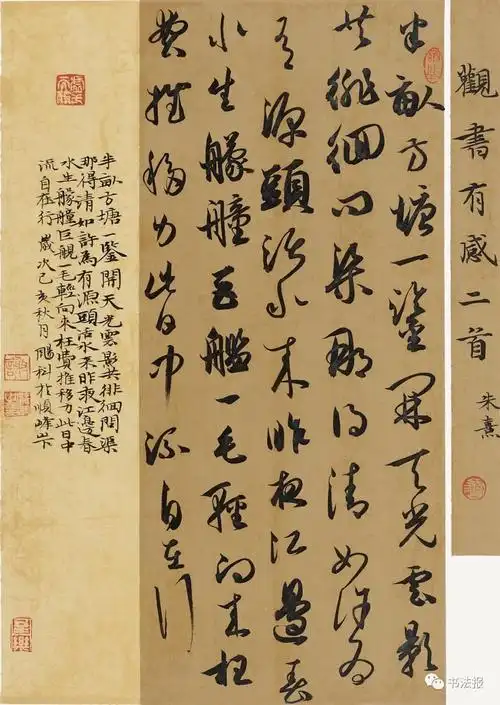 觀書有感二首
朱熹
半畝方塘一鑒開天光雲影
共徘徊問渠那得清如許為
有源頭活水來昨夜江邊春
水生艨艟巨艦一毛輕向來枉
費推移力此日中流自在行
半畝方塘一鑒開天光雲影共徘徊問渠
那得清如許為有源頭活水來昨夜江邊春
水生艨艟巨艦一毛輕向來枉費推移力此日中
流自在行 歲次己亥秋月 鵬科於順峰山下
书法报